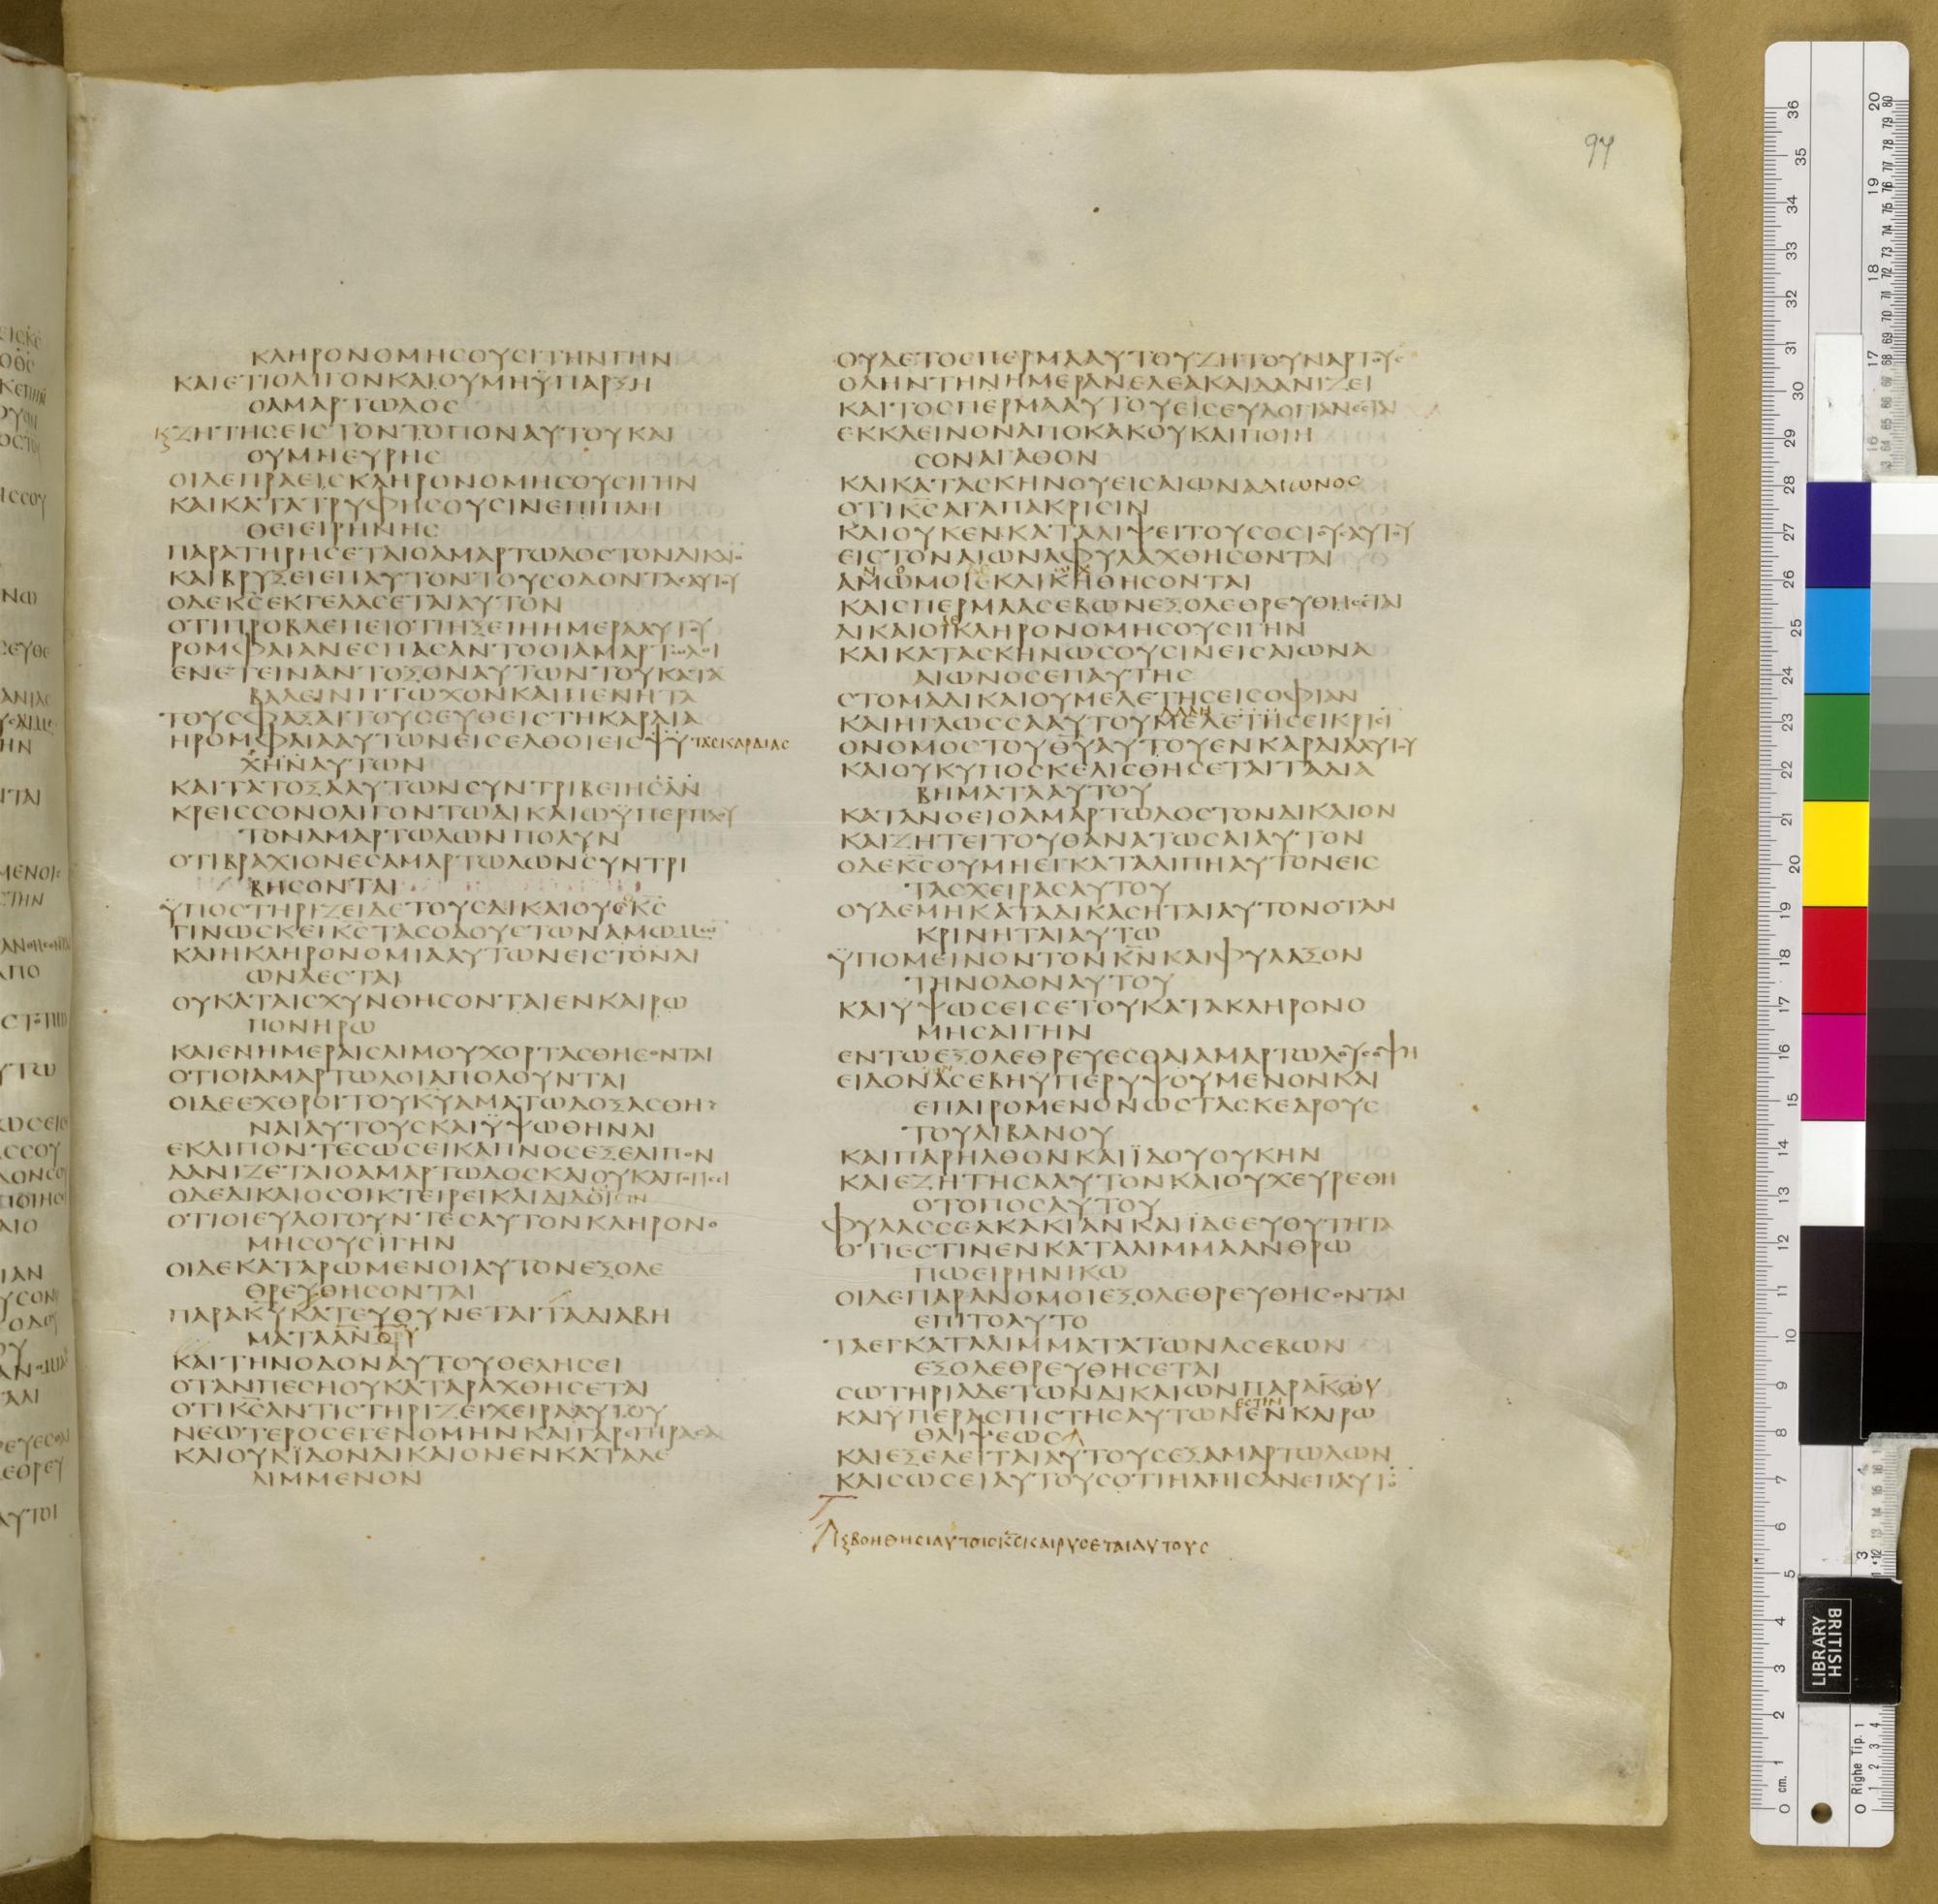 97
ΚΛΗΡΟΝΟΜΗϹΟΥϹΙΤΗΝΓΗΝ
ΚΑΙΕΤΙΟΛΙΓΟΝΚΑΙΟΥΜΗΫΠΑΡΞΗ
ΟΑΜΑΡΤΩΛΟϹ
ΚΖΗΤΗϹΕΙϹΤΟΝΤΟΠΟΝΑΥΤΟΥΚΑΙ
ΟΥΜΗΕΥΡΗϹ
ΟΙΔΕΠΡΑΕΙϹΚΛΗΡΟΝΟΜΗϹΟΥϹΙΓΗΝ
ΚΑΙΚΑΤΑΤΡΥΦΗϹΟΥϹΙΝΕΠΙΠΛΗ
ΘΕΙΕΙΡΗΝΗϹ
ΠΑΡΑΤΗΡΗϹΕΤΑΙΟΑΜΑΡΤΩΛΟϹΤΟΝΔΙΚΑΙΟ
ΚΑΙΒΡΥΞΕΙΕΠΑΥΤΟΝΤΟΥϹΟΔΟΝΤΑϹΑΥΤΟΥ
ΟΔΕΚϹΕΚΓΕΛΑϹΕΤΑΙΑΥΤΟΝ
ΟΤΙΠΡΟΒΛΕΠΕΙΟΤΙΗΞΕΙΗΗΜΕΡΑΑΥΤΟΥ
ΡΟΜΦΑΙΑΝΕϹΠΑϹΑΝΤΟΟΙΑΜΑΡΤΩΛΟΙ
ΕΝΕΤΕΙΝΑΝΤΟΞΟΝΑΥΤΩΝΤΟΥΚΑΤΑ
ΒΑΛΕΙΝΠΤΩΧΟΝΚΑΙΠΕΝΗΤΑ
ΤΟΥϹΦΑΞΑΙΤΟΥϹΕΥΘΕΙϹΤΗΚΑΡΔΙΑ
ΗΡΟΜΦΑΙΑΑΥΤΩΝΕΙϹΕΛΘΟΙΕΙϹΨΥ ΤΑϹΚΑΡΔΙΑϹ
ΧΗΝΑΥΤΩΝ
ΚΑΙΤΑΤΟΞΑΑΥΤΩΝϹΥΝΤΡΙΒΕΙΗϹΑΝ
ΚΡΕΙϹϹΟΝΟΛΙΓΟΝΤΩΔΙΚΑΙΩΫΠΕΡΠΛΟΥ
ΤΟΝΑΜΑΡΤΩΛΩΝΠΟΛΥΝ
ΟΤΙΒΡΑΧΙΟΝΕϹΑΜΑΡΤΩΛΩΝϹΥΝΤΡΙ
ΒΗϹΟΝΤΑΙ
ΫΠΟϹΤΗΡΙΖΕΙΔΕΤΟΥϹΔΙΚΑΙΟΥϹΟΚϹ
ΓΙΝΩϹΚΕΙΚϹΤΑϹΟΔΟΥϹΤΩΝΑΜΩΜΩ
ΚΑΙΗΚΛΗΡΟΝΟΜΙΑΑΥΤΩΝΕΙϹΤΟΝΑΙ
ΩΝΑΕϹΤΑΙ
ΟΥΚΑΤΑΙϹΧΥΝΘΗϹΟΝΤΑΙΕΝΚΑΙΡΩ
ΠΟΝΗΡΩ
ΚΑΙΕΝΗΜΕΡΑΙϹΛΙΜΟΥΧΟΡΤΑϹΘΗϹΟΝΤΑΙ
ΟΤΙΟΙΑΜΑΡΤΩΛΟΙΑΠΟΛΟΥΝΤΑΙ
ΟΙΔΕΕΧΘΡΟΙΤΟΥΚΥΑΜΑΤΩΔΟΞΑϹΘΗ
ΝΑΙΑΥΤΟΥϹΚΑΙΫΨΩΘΗΝΑΙ
ΕΚΛΙΠΟΝΤΕϹΩϹΕΙΚΑΠΝΟϹΕΞΕΛΙΠΟΝ
ΔΑΝΙΖΕΤΑΙΟΑΜΑΡΤΩΛΟϹΚΑΙΟΥΚΑΠΟΤΙϹΙ
ΟΔΕΔΙΚΑΙΟϹΟΙΚΤΕΙΡΕΙΚΑΙΔΙΔΟΙϹΙΝ
ΟΤΙΟΙΕΥΛΟΓΟΥΝΤΕϹΑΥΤΟΝΚΛΗΡΟΝΟ
ΜΗϹΟΥϹΙΓΗΝ
ΟΙΔΕΚΑΤΑΡΩΜΕΝΟΙΑΥΤΟΝΕΞΟΛΕ
ΘΡΕΥΘΗϹΟΝΤΑΙ
ΠΑΡΑΚΥΚΑΤΕΥΘΥΝΕΤΑΙΤΑΔΙΑΒΗ
ΜΑΤΑΑΝΟΥ
ΚΑΙΤΗΝΟΔΟΝΑΥΤΟΥΘΕΛΗϹΕΙ
ΟΤΑΝΠΕϹΗΟΥΚΑΤΑΡΑΧΘΗϹΕΤΑΙ
ΟΤΙΚϹΑΝΤΙϹΤΗΡΙΖΕΙΧΕΙΡΑΑΥΤΟΥ
ΝΕΩΤΕΡΟϹΕΓΕΝΟΜΗΝΚΑΙΓΑΡΕΓΗΡΑϹΑ
ΚΑΙΟΥΚΪΔΟΝΔΙΚΑΙΟΝΕΝΚΑΤΑΛΕ
ΛΙΜΜΕΝΟΝ
ΟΥΔΕΤΟϹΠΕΡΜΑΑΥΤΟΥΖΗΤΟΥΝΑΡΤΟΥϹ
ΟΛΗΝΤΗΝΗΜΕΡΑΝΕΛΕΑΚΑΙΔΑΝΙΖΕΙ
ΚΑΙΤΟϹΠΕΡΜΑΑΥΤΟΥΕΙϹΕΥΛΟΓΙΑΝΕϹΤΑΙ
ΕΚΚΛΕΙΝΟΝΑΠΟΚΑΚΟΥΚΑΙΠΟΙΗ
ϹΟΝΑΓΑΘΟΝ
ΚΑΙΚΑΤΑϹΚΗΝΟΥΕΙϹΑΙΩΝΑΑΙΩΝΟϹ
ΟΤΙΚϹΑΓΑΠΑΚΡΙϹΙΝ
ΚΑΙΟΥΚΕΝΚΑΤΑΛΙΨΕΙΤΟΥϹΟϹΙΟΥϹΑΥΤΟΥ
ΕΙϹΤΟΝΑΙΩΝΑΦΥΛΑΧΘΗϹΟΝΤΑΙ
ΑΜΩΜΟΙΕΚΔΙΚΗΘΗϹΟΝΤΑΙ
ΚΑΙϹΠΕΡΜΑΑϹΕΒΩΝΕΞΟΛΕΘΡΕΥΘΗϹΕΤΑΙ
ΔΙΚΑΙΟΙΚΛΗΡΟΝΟΜΗϹΟΥϹΙΓΗΝ
ΚΑΙΚΑΤΑϹΚΗΝΩϹΟΥϹΙΝΕΙϹΑΙΩΝΑ
ΑΙΩΝΟϹΕΠΑΥΤΗϹ
ϹΤΟΜΑΔΙΚΑΙΟΥΜΕΛΕΤΗϹΕΙϹΟΦΙΑΝ
ΚΑΙΗΓΛΩϹϹΑΑΥΤΟΥΜΕΛΕΤΗϹΕΙΚΡΙϹΙ
ΟΝΟΜΟϹΤΟΥΘΥΑΥΤΟΥΕΝΚΑΡΔΙΑΑΥΤΟΥ
ΚΑΙΟΥΚΥΠΟϹΚΕΛΙϹΘΗϹΕΤΑΙΤΑΔΙΑ
ΒΗΜΑΤΑΑΥΤΟΥ
ΚΑΤΑΝΟΕΙΟΑΜΑΡΤΩΛΟϹΤΟΝΔΙΚΑΙΟΝ
ΚΑΙΖΗΤΕΙΤΟΥΘΑΝΑΤΩϹΑΙΑΥΤΟΝ
ΟΔΕΚϹΟΥΜΗΕΓΚΑΤΑΛΙΠΗΑΥΤΟΝΕΙϹ
ΤΑϹΧΕΙΡΑϹΑΥΤΟΥ
ΟΥΔΕΜΗΚΑΤΑΔΙΚΑϹΗΤΑΙΑΥΤΟΝΟΤΑΝ
ΚΡΙΝΗΤΑΙΑΥΤΩ
ΫΠΟΜΕΙΝΟΝΤΟΝΚΝΚΑΙΦΥΛΑΞΟΝ
ΤΗΝΟΔΟΝΑΥΤΟΥ
ΚΑΙΫΨΩϹΕΙϹΕΤΟΥΚΑΤΑΚΛΗΡΟΝΟ
ΜΗϹΑΙΓΗΝ
ΕΝΤΩΕΞΟΛΕΘΡΕΥΕϹΘΑΙΑΜΑΡΤΩΛΟΥϹΟΨΗ
ΕΙΔΟΝΑϹΕΒΗΫΠΕΡΥΨΟΥΜΕΝΟΝΚΑΙ
ΕΠΑΙΡΟΜΕΝΟΝΩϹΤΑϹΚΕΔΡΟΥϹ
ΤΟΥΛΙΒΑΝΟΥ
ΚΑΙΠΑΡΗΛΘΟΝΚΑΙΪΔΟΥΟΥΚΗΝ
ΚΑΙΕΖΗΤΗϹΑΑΥΤΟΝΚΑΙΟΥΧΕΥΡΕΘΗ
ΟΤΟΠΟϹΑΥΤΟΥ
ΦΥΛΑϹϹΕΑΚΑΚΙΑΝΚΑΙΪΔΕΕΥΘΥΤΗΤΑ
ΟΤΙΕϹΤΙΝΕΝΚΑΤΑΛΙΜΜΑΑΝΘΡΩ
ΠΩΕΙΡΗΝΙΚΩ
ΟΙΔΕΠΑΡΑΝΟΜΟΙΕΞΟΛΕΘΡΕΥΘΗϹΟΝΤΑΙ
ΕΠΙΤΟΑΥΤΟ
ΤΑΕΓΚΑΤΑΛΙΜΜΑΤΑΤΩΝΑϹΕΒΩΝ
ΕΞΟΛΕΘΡΕΥΘΗϹΕΤΑΙ
ϹΩΤΗΡΙΑΔΕΤΩΝΔΙΚΑΙΩΝΠΑΡΑΚΥ
ΕϹΤΙΝ
ΚΑΙΫΠΕΡΑϹΠΙϹΤΗϹΑΥΤΩΝΕΝΚΑΙΡΩ
ΘΛΙΨΕΩϹ
ΚΑΙΕΞΕΛΕΙΤΑΙΑΥΤΟΥϹΕΞΑΜΑΡΤΩΛΩΝ
ΚΑΙϹΩϹΕΙΑΥΤΟΥϹΟΤΙΗΛΠΙϹΑΝΕΠΑΥΤΟ
ΒΟΗΘΗϹΙΑΥΤΟΙϹΚϹΚΑΙΡΥϹΕΤΑΙΑΥΤΟΥϹ
BRITISH
LIBRARY
cm.
Righe Tip. 1